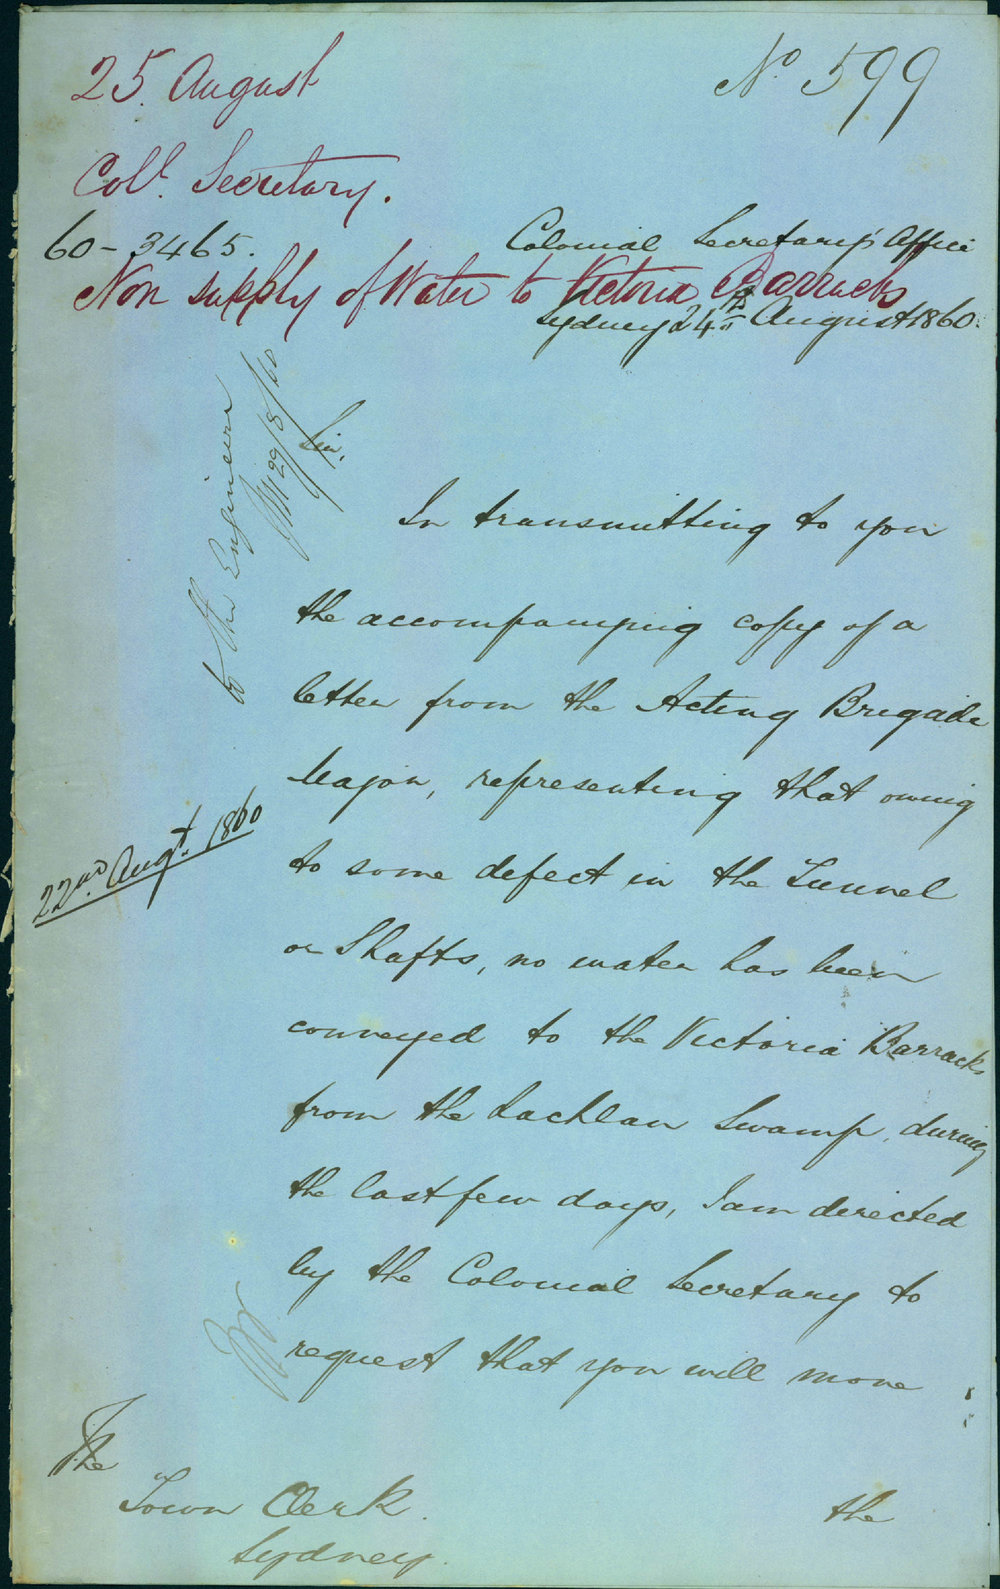 25. August
No. 599
Coll. Secretary.
60-3465.
Colonial Secretary's Office
Non supply of Water to Victoria Barracks
Sydney 24th August 1860.
to the Engineer
29/8/60
Sir,
In transmitting to you
the accompanying copy of a
letter from the Acting Brigade
Major, representing that owing
22nd. Augt. 1860
to some defect in the Tunnel
or Shafts, no water has been
conveyed to the Victoria Barracks
from the Lachlan Swamp, during
the last few days, I am directed
by the Colonial Secretary to
request that you will move
The
Town Clerk.
Sydney.
the